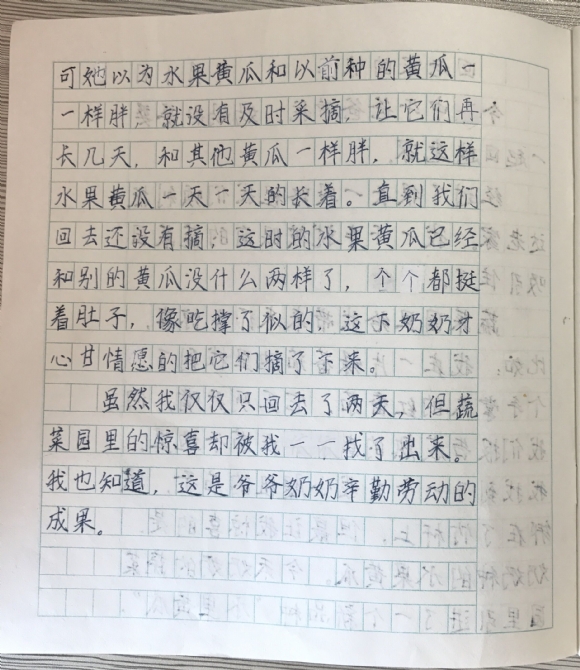 可她以为水果黄瓜和以前种的黄瓜一
一样胖，就没有及时采摘，让它们再
长几天，和其他黄瓜一样胖，就这样
水果黄瓜一天一天的长着。直到我们
回去还没有摘，这时的水果黄瓜已经
和别的黄瓜没什么两样了，个个都挺
着肚子，像吃撑了似的，这下奶奶才
心甘情愿的把它们摘了下来。
虽然我仅仅只回去了两天，但蔬
菜园里的惊喜却被我一一找了出来。
我也知道，这是爷爷奶奶辛勤劳动的
成果。